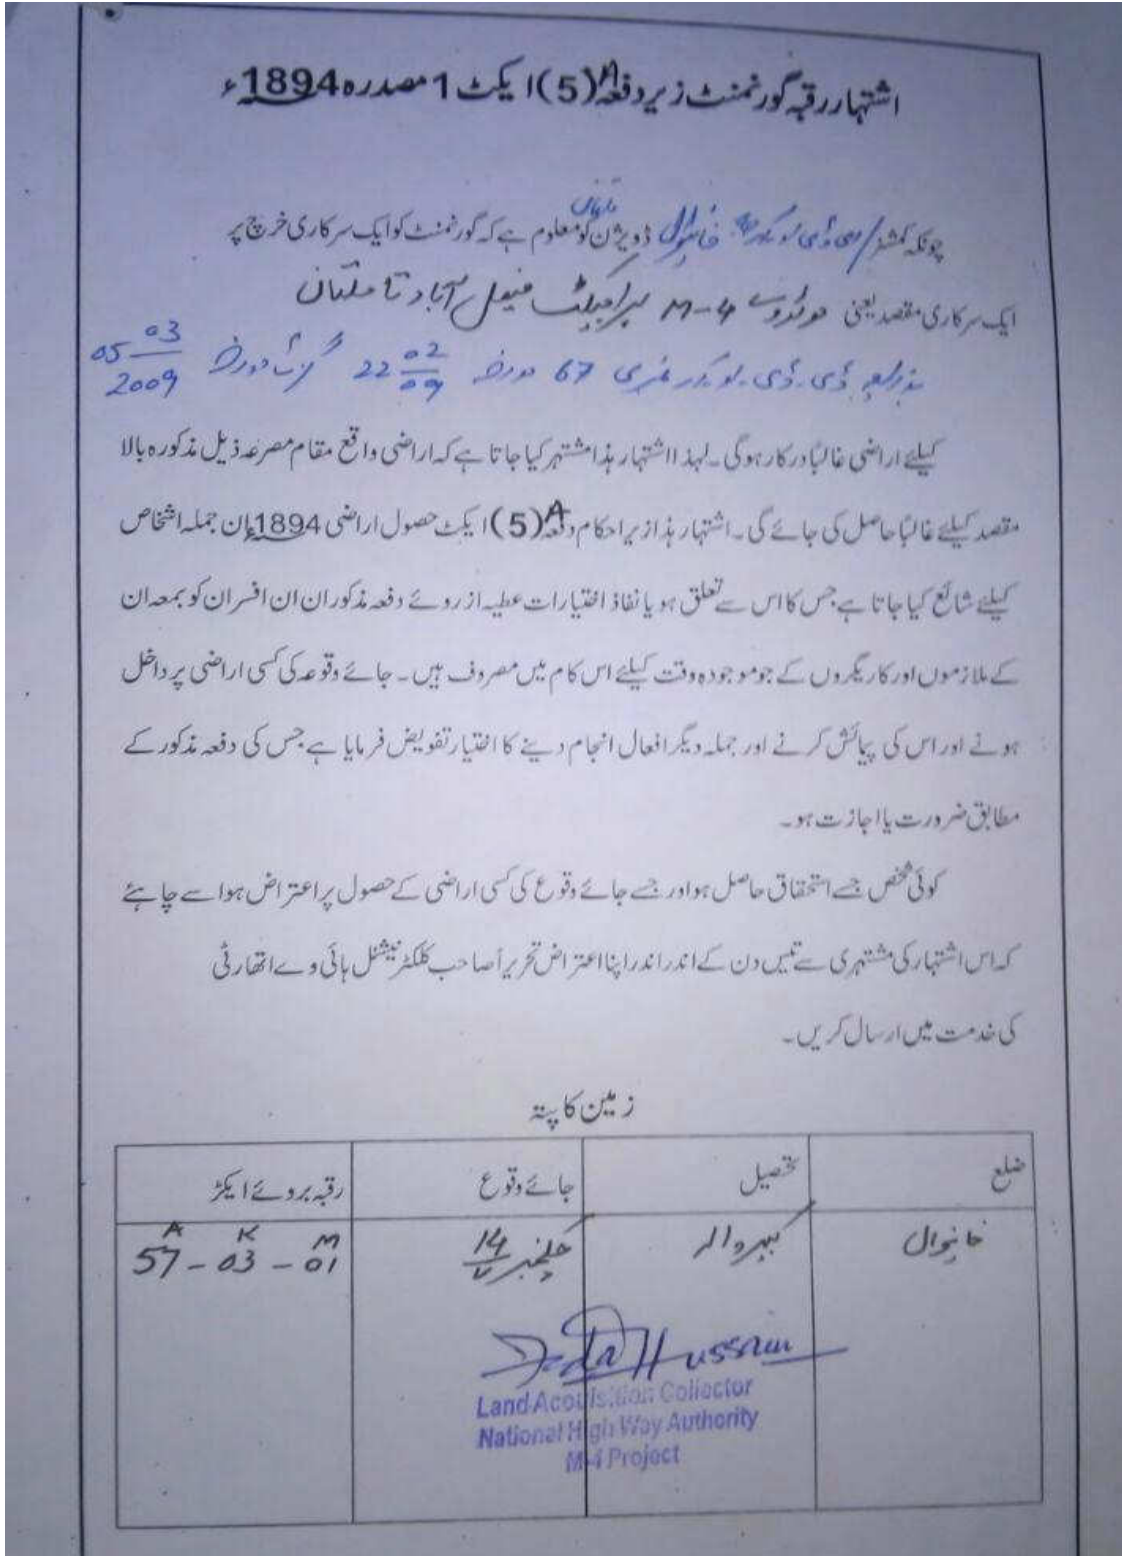 اشتہار رقبہ گورنمنٹ زیر دفعہ A(5) ایکٹ 1 مصدرہ 1894ء
ملتان
چونکہ کمشنر/ خانیوال ڈویژن کو معلوم ہے کہ گورنمنٹ کو ایک سرکاری خرچ پر
ایک سرکاری مقصد یعنی موٹروے M-4 پراجیکٹ فیصل آباد تا ملتان
بذریعہ ڈی۔ڈی۔او۔آر نمبری 67 مورخہ 22 02/09 گزٹ مورخہ 05 03/2009
کیلئے اراضی غالباً درکار ہوگی۔ لہذا اشتہار ہذا مشتہر کیا جاتا ہے کہ اراضی واقع مقام مصرعہ ذیل مذکورہ بالا
مقصد کیلئے غالباً حاصل کی جائے گی۔ اشتہار ہذا زیر احکام دفعہ A(5) ایکٹ حصول اراضی 1894ء ان جملہ اشخاص
کیلئے شائع کیا جاتا ہے جس کا اس سے تعلق ہو یا نفاذ اختیارات عطیہ از روئے دفعہ مذکور ان ان افسران کو بمعہ ان
کے ملازموں اور کاریگروں کے جو موجودہ وقت کیلئے اس کام میں مصروف ہیں۔ جائے وقوعہ کی کسی اراضی پر داخل
ہونے اور اس کی پیمائش کرنے اور جملہ دیگر افعال انجام دینے کا اختیار تفویض فرمایا ہے جس کی دفعہ مذکور کے
مطابق ضرورت یا اجازت ہو۔
کوئی شخص جسے استحقاق حاصل ہو اور جسے جائے وقوع کی کسی اراضی کے حصول پر اعتراض ہو اسے چاہئے
کہ اس اشتہار کی مشتہری سے تیس دن کے اندر اندر اپنا اعتراض تحریراً صاحب کلکٹر نیشنل ہائی وے اتھارٹی
کی خدمت میں ارسال کریں۔
زمین کا پتہ
ضلع تحصیل جائے وقوع رقبہ بروئے ایکڑ
خانیوال کبیروالہ چک نمبر 14/V A K M
57 - 03 - 01
Hussain
Land Acquisition Collector
National High Way Authority
M-4 Project